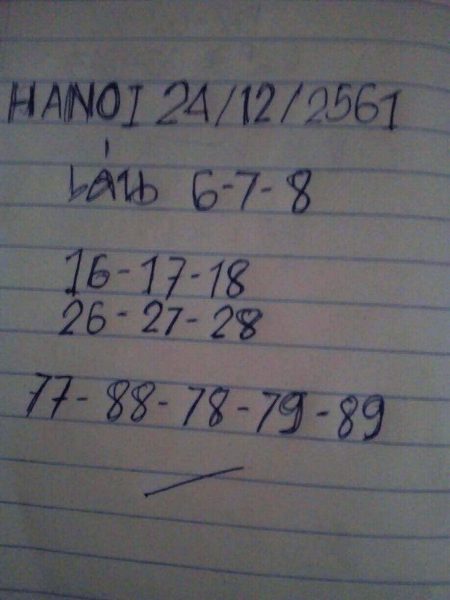 HANOI 24/12/2561
เล่น 6-7-8
16-17-18
26-27-28
77-88-78-79-89